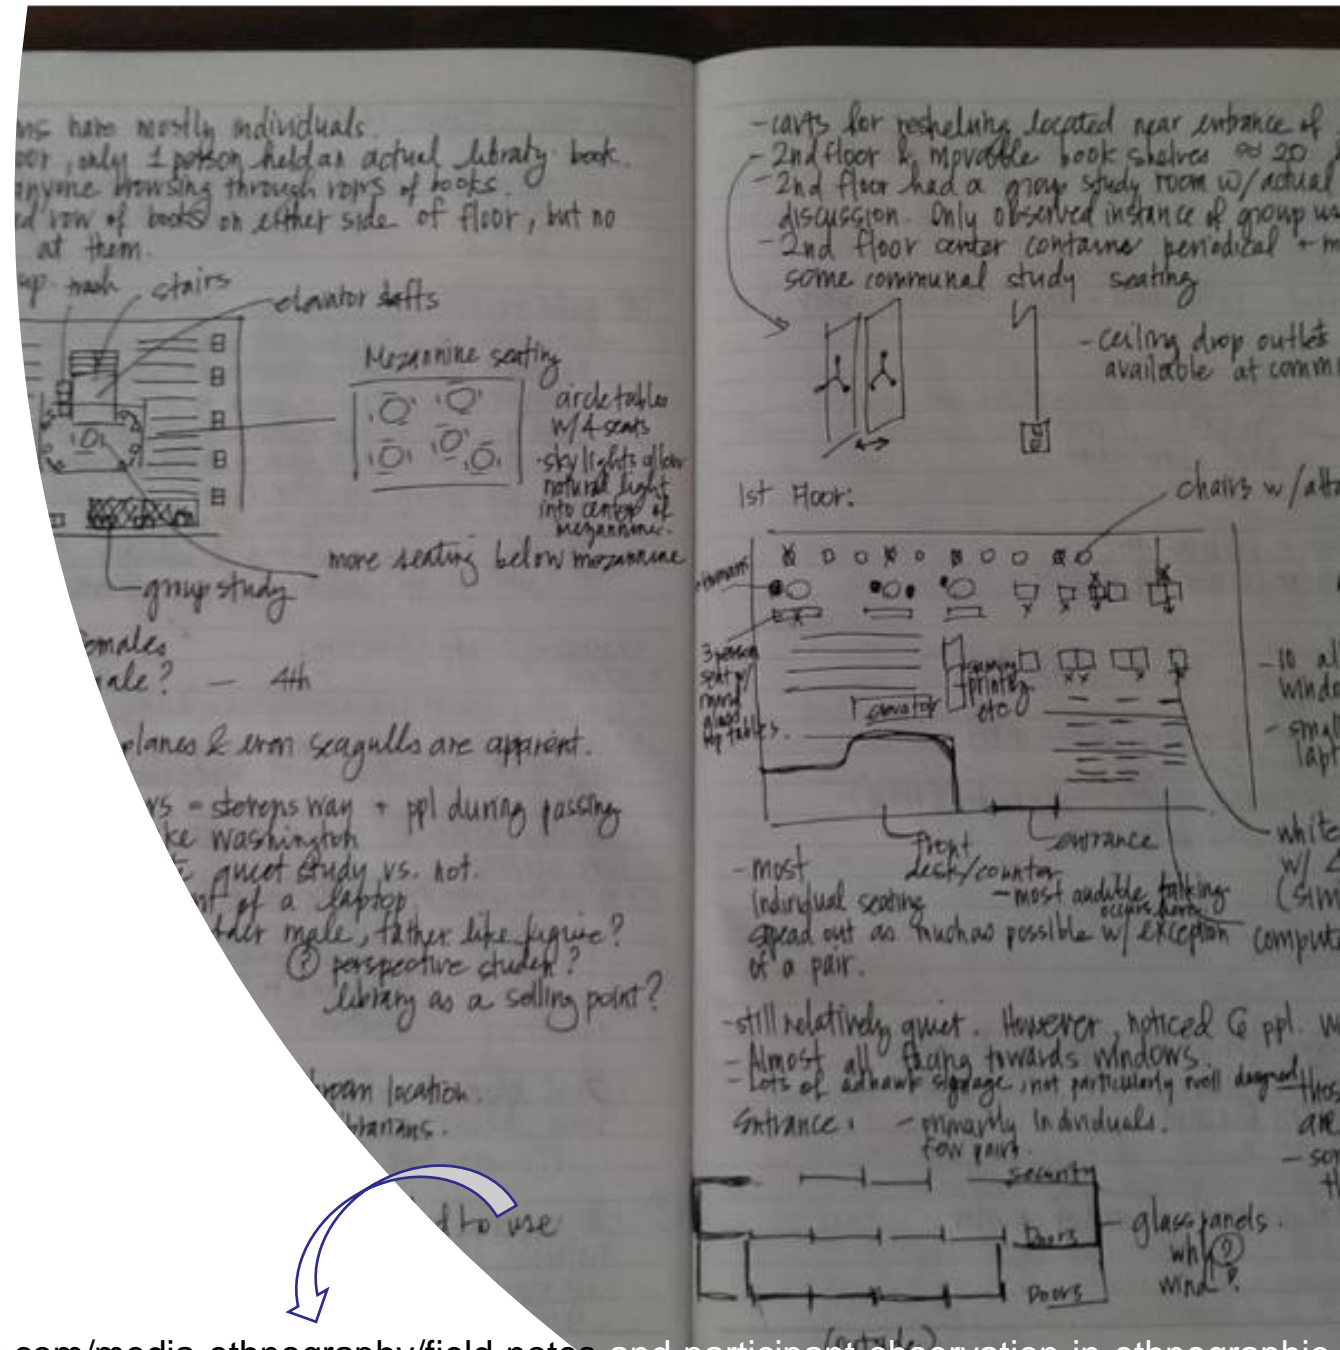 ns have mostly individuals.
oor, only 1 person held an actual library book.
anyone browsing through rows of books.
ed row of books on either side of floor, but no
at them.
up trash
stairs
elevator shafts
Mezannine seating
circle tables
w/ 4 seats
-skylights allow
natural light
into center of
mezannine.
more seating below mezannine
group study
females
ale? — 4th
planes & even seagulls are apparent.
ws = stevens way + ppl during passing
ke Washington
quiet study vs. not.
nt of a laptop
der male, father like figure?
? perspective studen?
library as a selling point?
room location.
brarians.
d to use
- carts for reshelving located near entrance of
- 2nd floor & movable book shelves ≈ 20
- 2nd floor had a group study room w/ actual
discussion. Only observed instance of group us
- 2nd floor center contains periodical + m
some communal study seating
- ceiling drop outlet
available at comm
1st Floor:
chairs w/ atta
humans
3 person
seat w/
round
glass
top tables.
scanning
printing
etc
elevator
- 10 al
windo
- small
lapt
front
desk/counter
entrance
white
w/
(sim
- most
individual seating
spead out as much as possible w/ exception
of a pair.
- most audible talking
occurs here
compute
- still relatively quiet. However, noticed 6 ppl. w
- Almost all facing towards windows.
- Lots of adhawk signage, not particularly well designed
thos
are
- son
th
Entrance: - primarily individuals.
few pairs.
security
Doors
Doors
glass panels.
why ?
wind?
(outside)
com/media-ethnography/field-notes-and-participant-observation-in-ethnographic